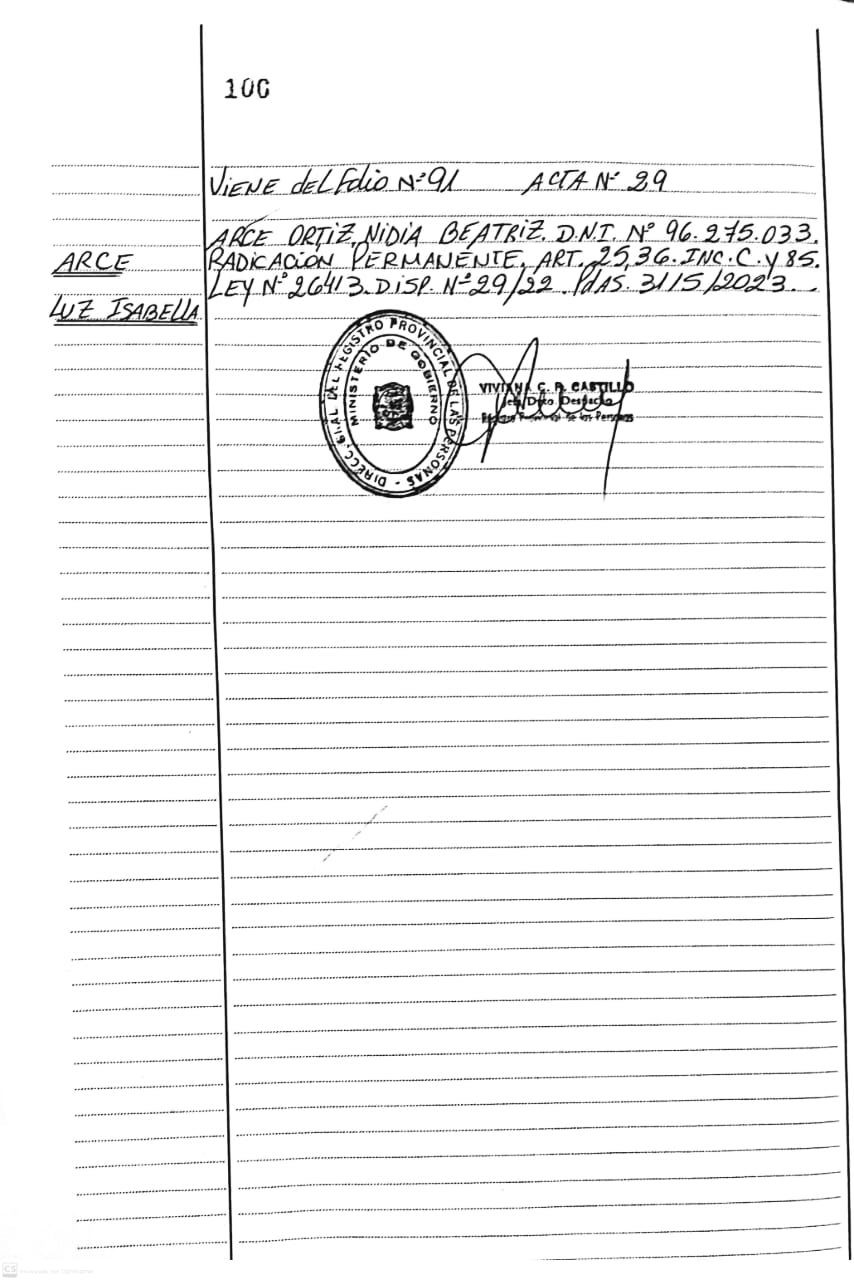 100
VIENE del Folio Nº 91 ACTA Nº 29
ARCE ORTIZ, NIDIA BEATRIZ. D.N.I. Nº 96.275.033.
RADICACIÓN PERMANENTE. ART. 25,36. INC. C. y 85.
LEY Nº 26413. DISP. Nº 29/22. PdAS. 31/5/2023.-
ARCE
LUZ ISABELLA
DIRECC. GRAL DEL REGISTRO PROVINCIAL DE LAS PERSONAS -
MINISTERIO DE GOBIERNO
VIVIANA C. R. CASTILLO
Jefa Dpto. Despacho
Registro Provincial de las Personas
CS